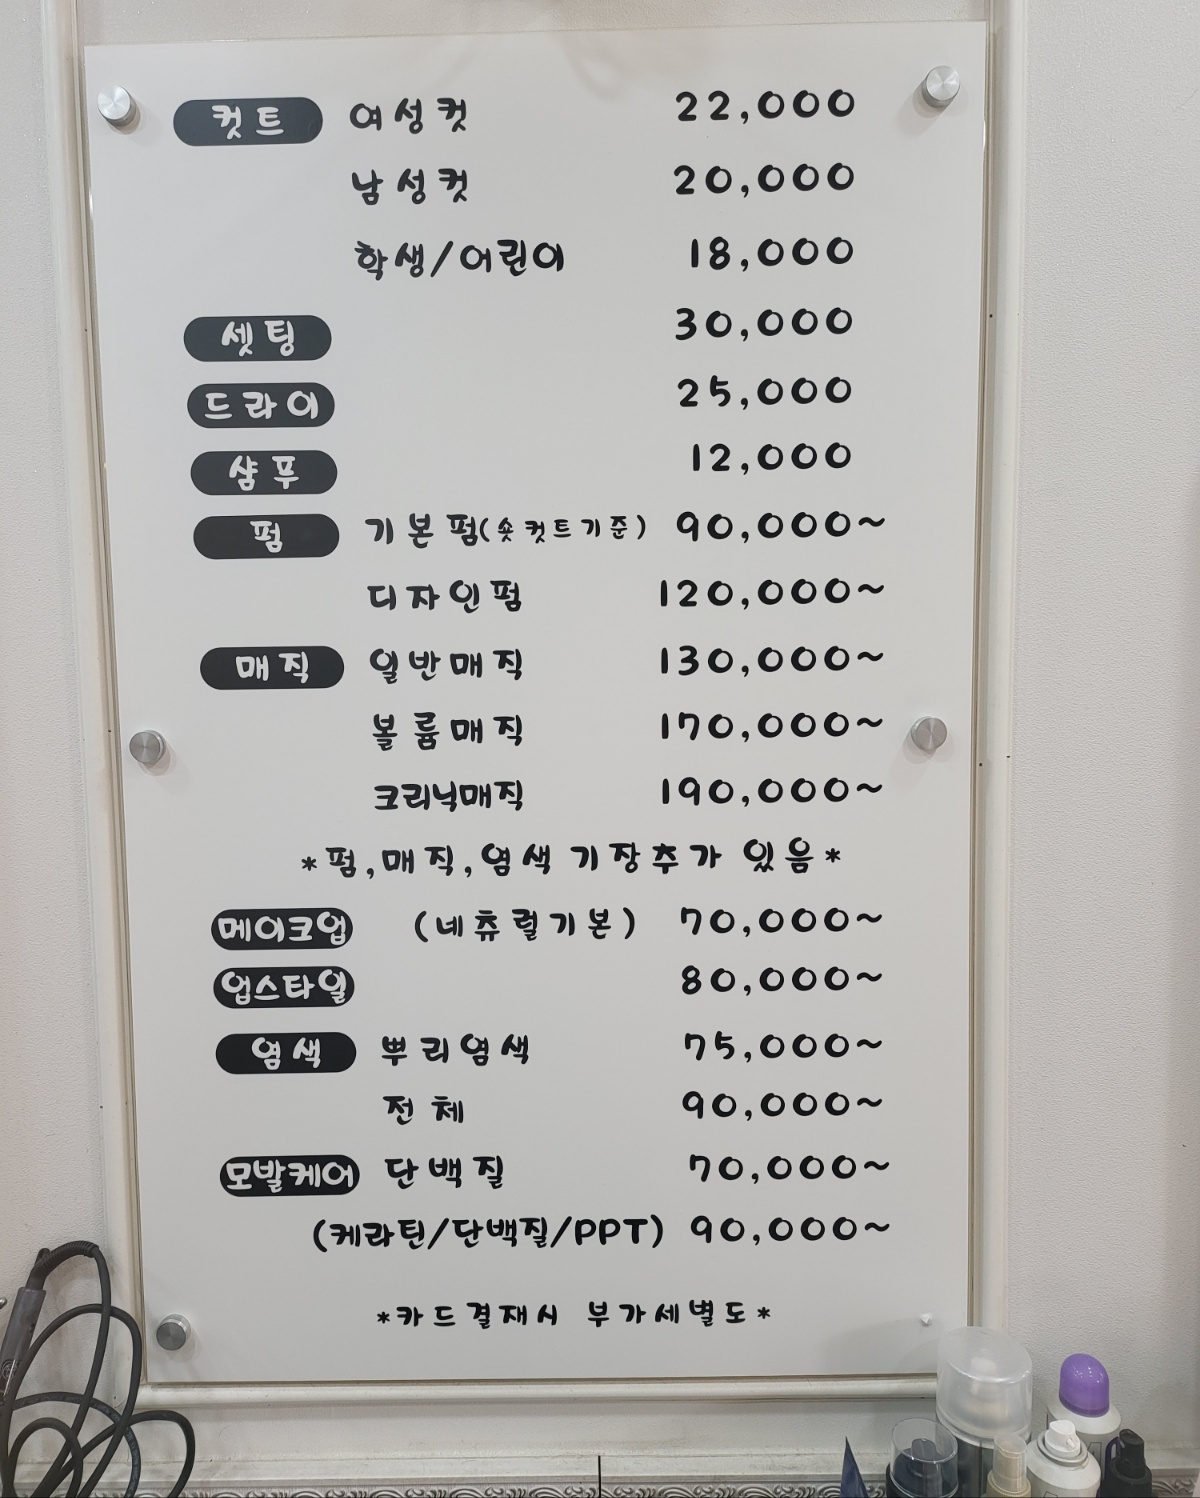 컷트 여성컷 22,000
남성컷 20,000
학생/어린이 18,000
셋팅 30,000
드라이 25,000
샴푸 12,000
펌 기본펌(숏컷트기준) 90,000~
디자인펌 120,000~
매직 일반매직 130,000~
볼륨매직 170,000~
크리닉매직 190,000~
*펌,매직,염색 기장추가 있음*
메이크업 (네츄럴기본) 70,000~
업스타일 80,000~
염색 뿌리염색 75,000~
전체 90,000~
모발케어 단백질 70,000~
(케라틴/단백질/PPT) 90,000~
*카드결재시 부가세별도*